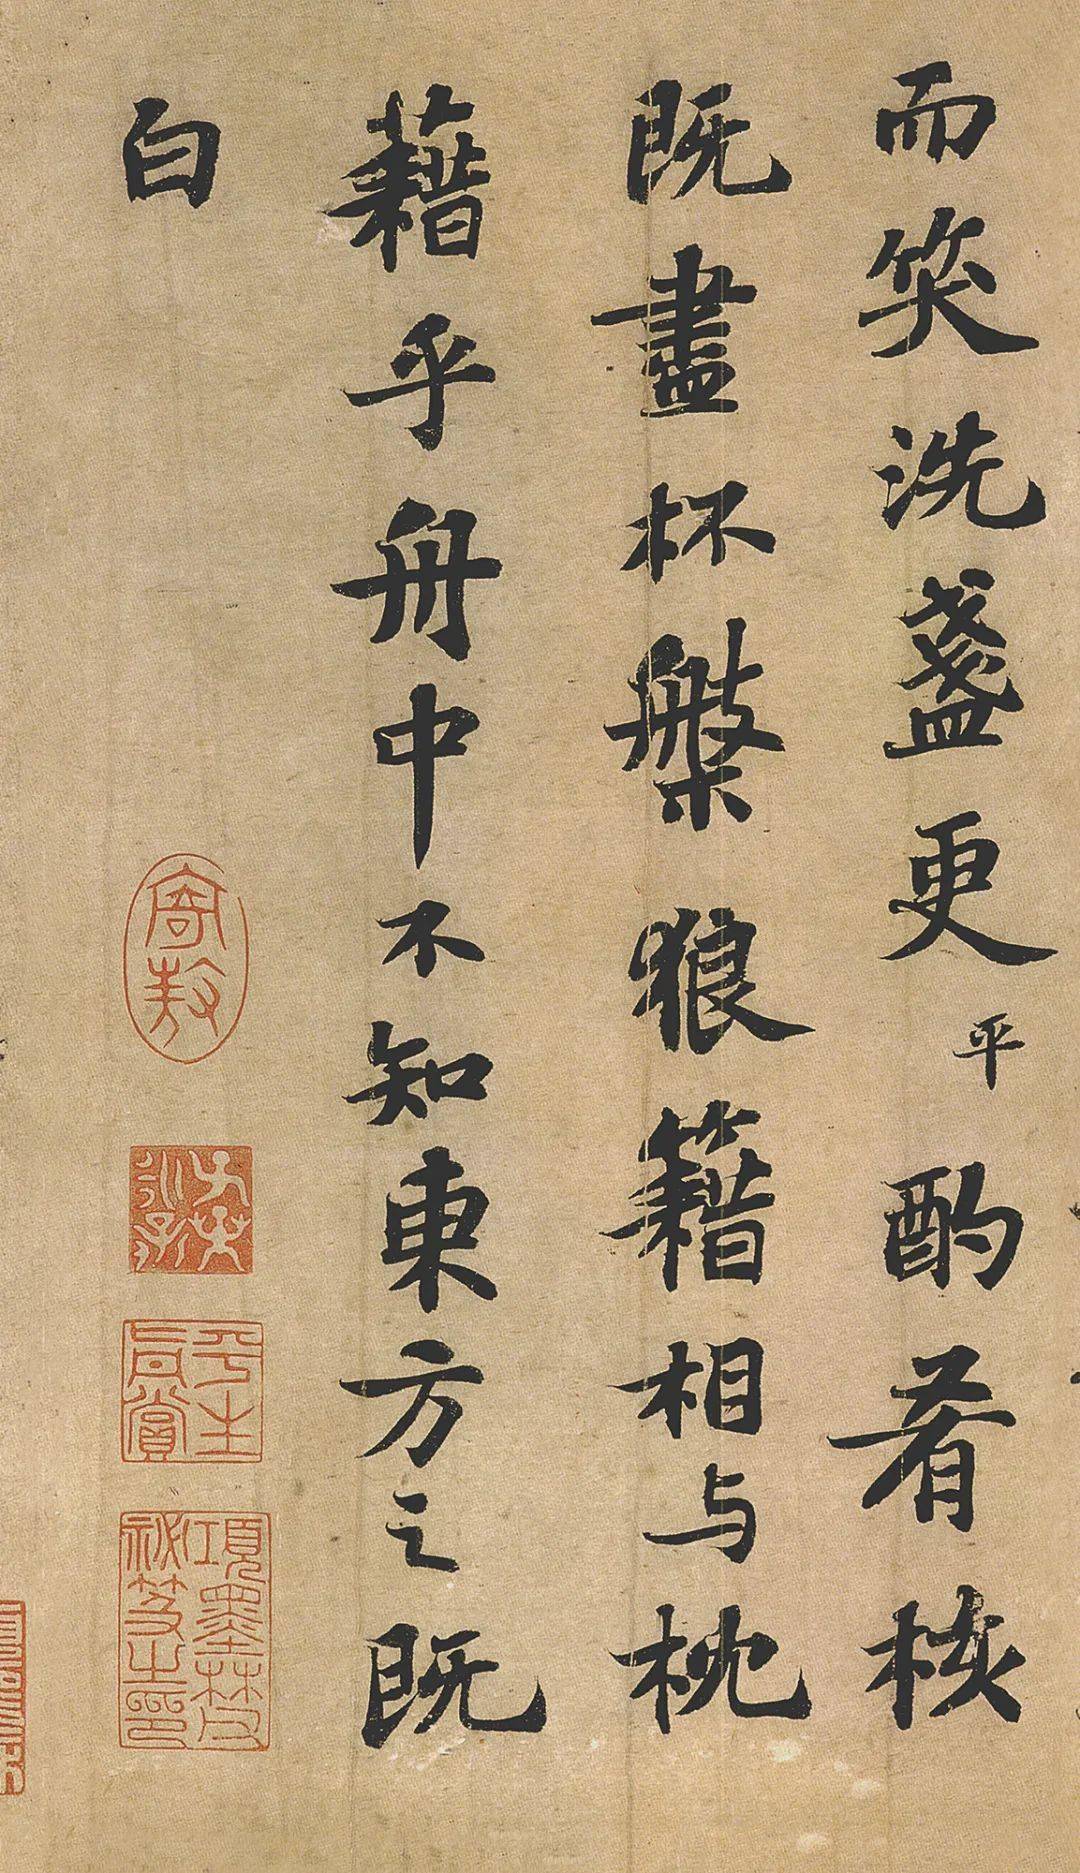 而笑洗盞更平酌肴核
既盡杯槃狼籍相与枕
藉乎舟中不知東方之既
白
寄敖
平生真賞
項墨林父秘笈之印